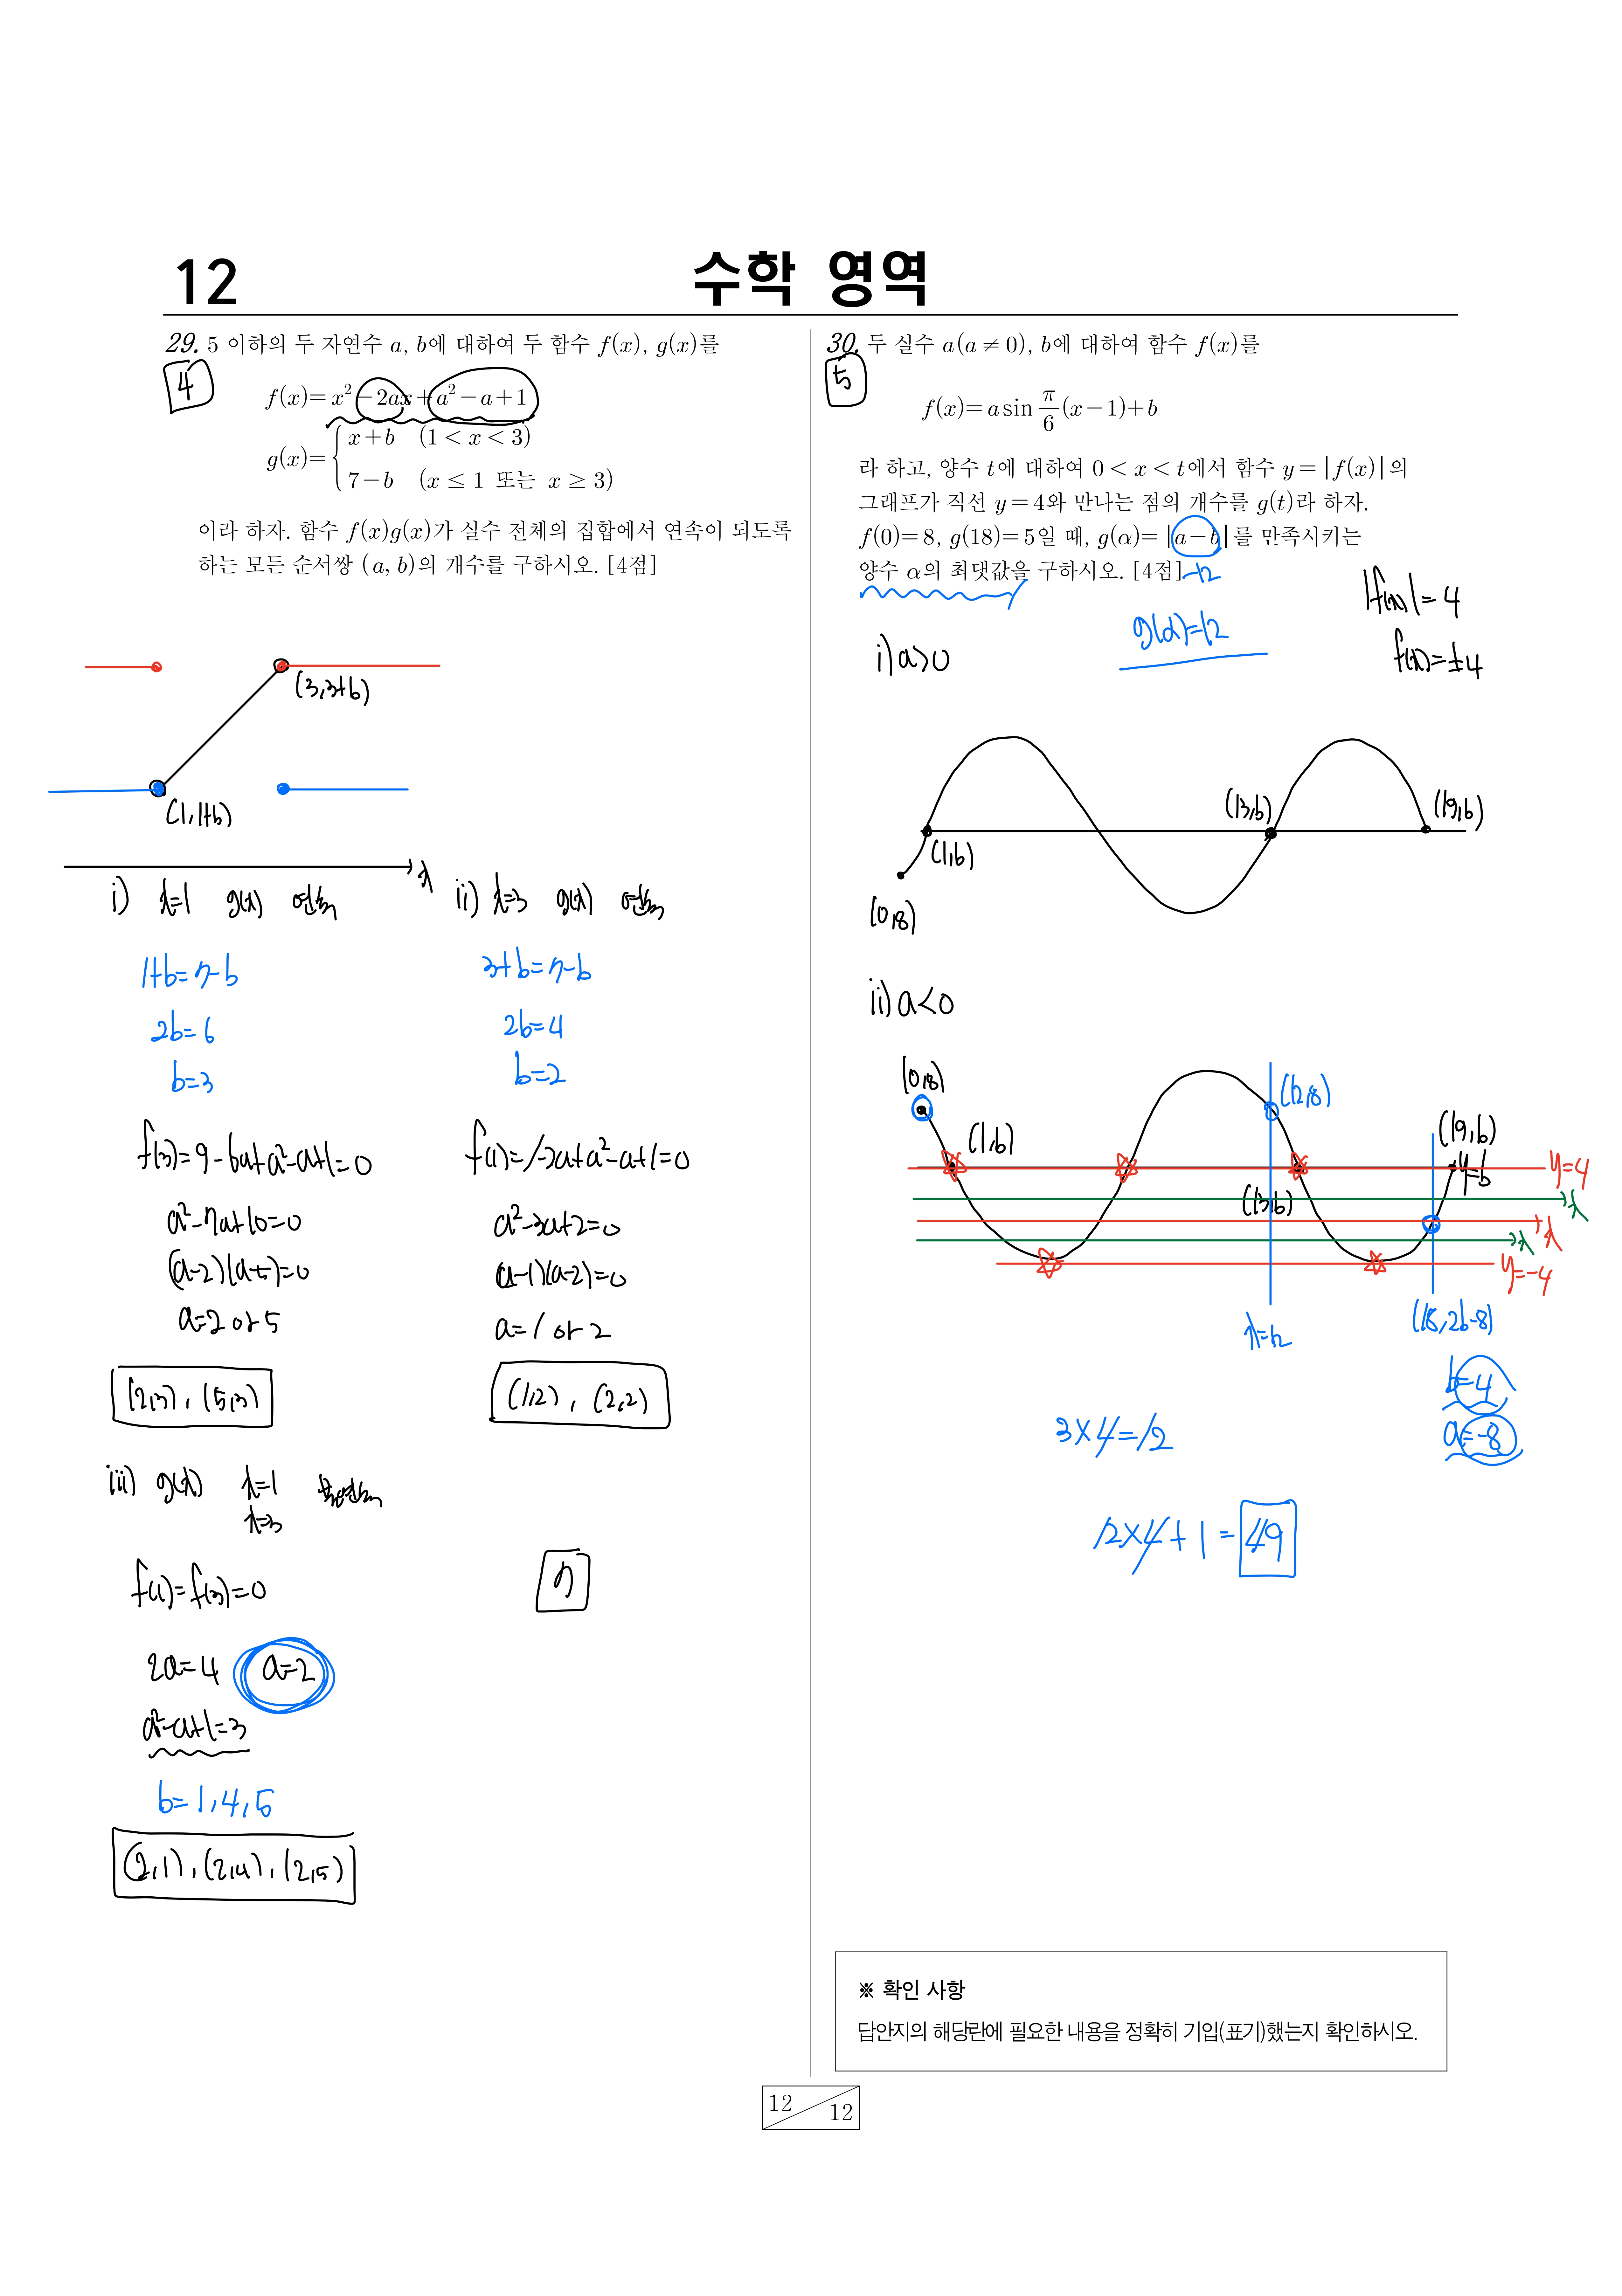 12
수학 영역
29. 5 이하의 두 자연수 a, b에 대하여 두 함수 f(x), g(x)를
4
f(x)=x²-2ax+a²-a+1
g(x)={ x+b (1<x<3)
7-b (x≤1 또는 x≥3)
이라 하자. 함수 f(x)g(x)가 실수 전체의 집합에서 연속이 되도록
하는 모든 순서쌍 (a, b)의 개수를 구하시오. [4점]
(3,3+b)
(1,1+b)
x
i) x=1 g(x) 연속
1+b=7-b
2b=6
b=3
f(3)=9-6a+a²-a+1=0
a²-7a+10=0
(a-2)(a-5)=0
a=2 or 5
(2,3), (5,3)
ii) x=3 g(x) 연속
3+b=7-b
2b=4
b=2
f(1)=1-2a+a²-a+1=0
a²-3a+2=0
(a-1)(a-2)=0
a=1 or 2
(1,2), (2,2)
iii) g(x) x=1 불연속
x=3
f(1)=f(3)=0
7
2a=4 a=2
a²-a+1=3
b=1,4,5
(2,1), (2,4), (2,5)
30. 두 실수 a(a≠0), b에 대하여 함수 f(x)를
5
f(x)=a sin π/6 (x-1)+b
라 하고, 양수 t에 대하여 0<x<t에서 함수 y=|f(x)|의
그래프가 직선 y=4와 만나는 점의 개수를 g(t)라 하자.
f(0)=8, g(18)=5일 때, g(α)=|a-b|를 만족시키는
양수 α의 최댓값을 구하시오. [4점]
-12
g(α)=12
|f(x)|=4
f(x)=±4
i) a>0
(13,b)
(19,b)
(1,b)
(0,8)
ii) a<0
(0,8)
(12,8)
(1,b)
(19,b)
y=b
y=4
(13,b)
x
x
x
y=-4
x=12
(18,2b-8)
b=4
a=-8
3×4=12
12×4+1=49
※ 확인 사항
답안지의 해당란에 필요한 내용을 정확히 기입(표기)했는지 확인하시오.
12
12